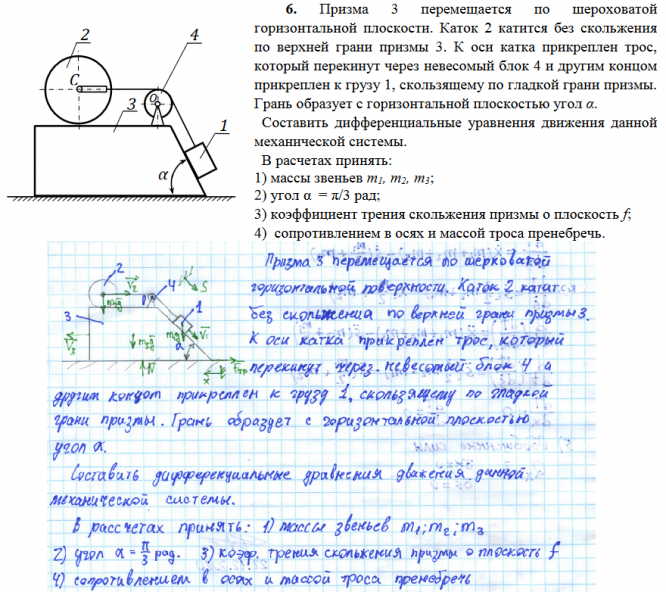 6. Призма 3 перемещается по шероховатой
горизонтальной плоскости. Каток 2 катится без скольжения
по верхней грани призмы 3. К оси катка прикреплен трос,
который перекинут через невесомый блок 4 и другим концом
прикреплен к грузу 1, скользящему по гладкой грани призмы.
Грань образует с горизонтальной плоскостью угол α.
Составить дифференциальные уравнения движения данной
механической системы.
В расчетах принять:
1) массы звеньев m1, m2, m3;
2) угол α = π/3 рад;
3) коэффициент трения скольжения призмы о плоскость f;
4) сопротивлением в осях и массой троса пренебречь.
2
4
C
O
3
1
α
Призма 3 перемещается по шероховатой
горизонтальной поверхности. Каток 2 катится
без скольжения по верхней грани призмы 3.
К оси катка прикреплен трос, который
перекинут через невесомый блок 4 а
другим концом прикреплен к грузу 1, скользящему по гладкой
грани призмы. Грань образует с горизонтальной плоскостью
угол α.
Составить дифференциальные уравнения движения данной
механической системы.
В рассчетах принять: 1) массы звеньев m1; m2; m3
2) угол α = π/3 рад. 3) коэф. трения скольжения призмы о плоскость f
4) сопротивлением в осях и массой троса пренебречь
2
4
S
V2
m2g
1
3
m1g
V1
V3
m3g
α
N
x
Fтр